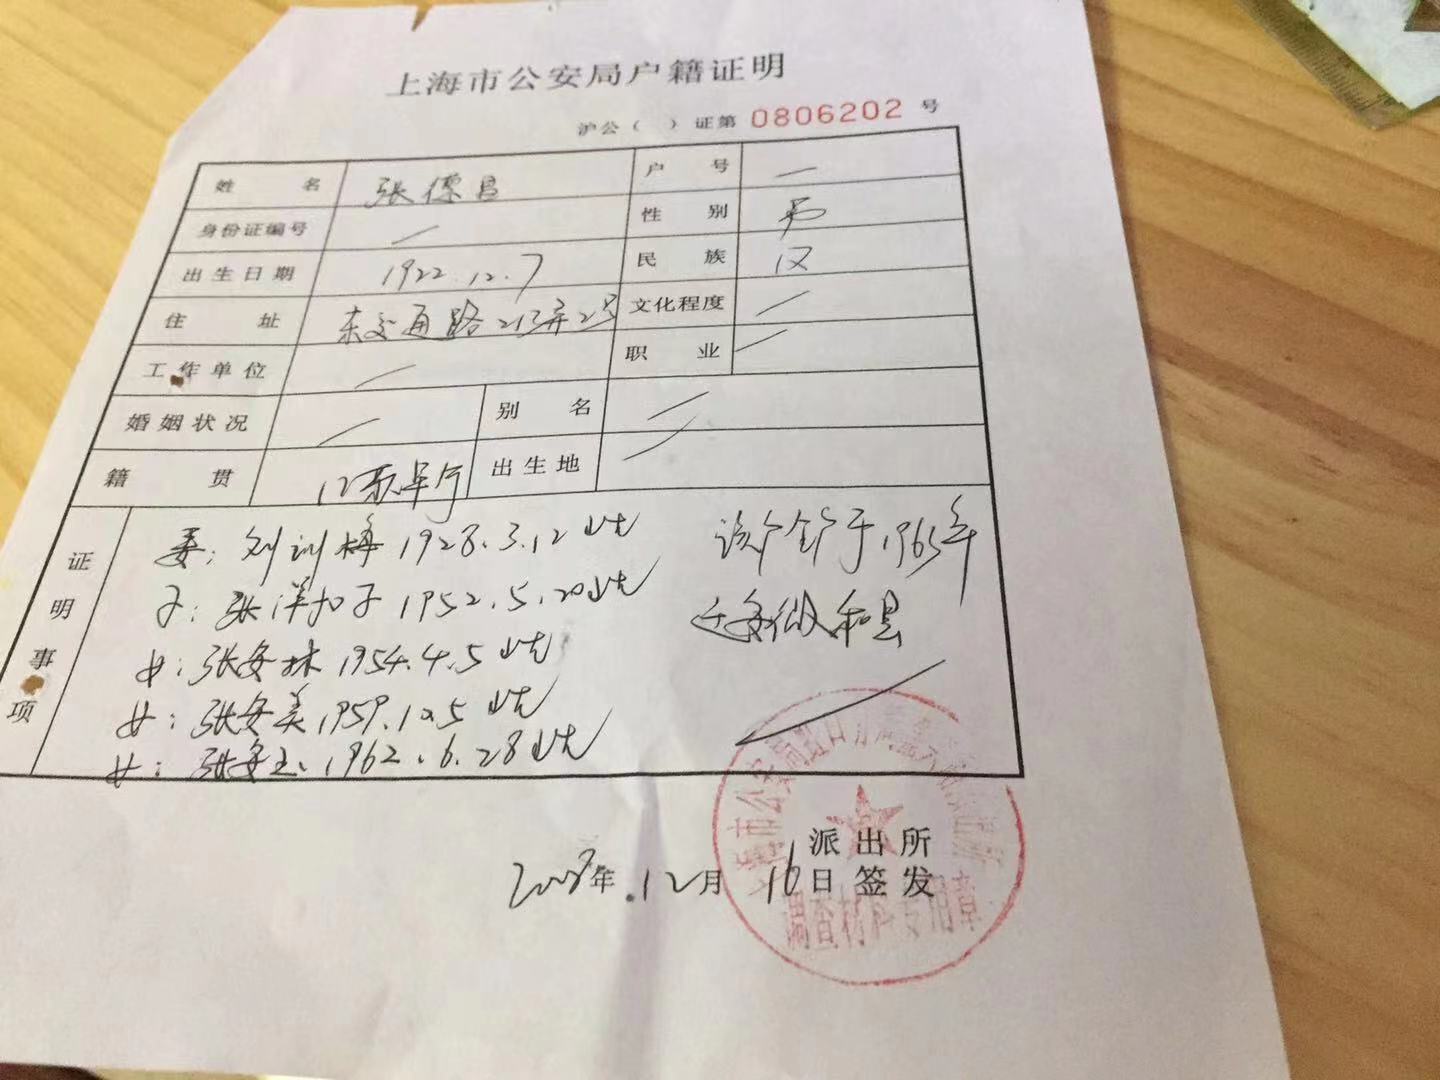 上海市公安局户籍证明
沪公（ ）证第 0806202 号
姓名 张德昌 户号 /
身份证编号 / 性别 男
出生日期 1922.12.7 民族 汉
住址 东交通路213弄2号 文化程度 /
工作单位 / 职业 /
婚姻状况 / 别名 /
籍贯 江苏阜宁 出生地 /
证明事项
妻：刘训梅 1928.3.12 出生
子：张洋扣子 1952.5.20出生
女：张安林 1954.4.5 出生
女：张安美 1959.12.5 出生
女：张安玉 1962.6.28出生
该户全户于1965年
迁安徽和县
派出所
2008年.12月16日签发
调查材料专用章